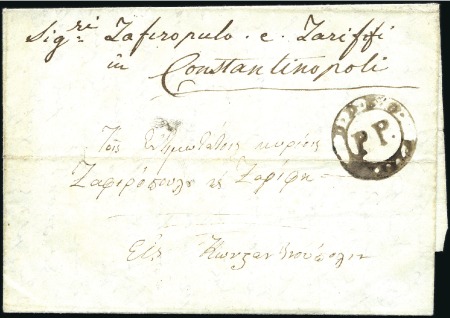 Sig.ri Zafiropulo e Zariffi
in Constantinopoli
P P.
Τοῖς Τιμιωτάτοις κυρίοις
Ζαφιρόπουλῳ κ Ζαρίφη
Εἰς Κωνσταντινούπολιν